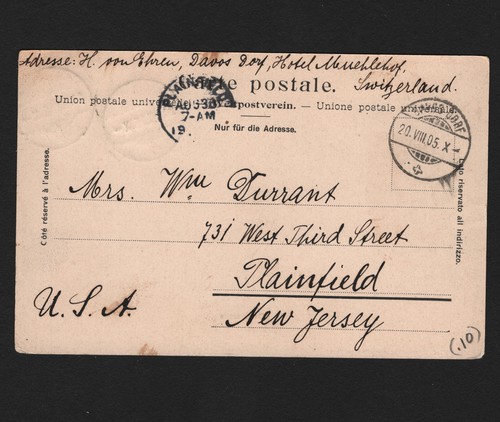 Adresse: H. von Ehren, Davos Dorf, Hotel Muehlehof,
Switzerland.
te postale.
Union postale univer postverein. — Unione postale universale.
Nur für die Adresse.
PLAINFIELD
AUG 30
7-AM
19
DORF
20.VIII.05.X
Côté réservé à l'adresse.
Lato riservato all indirizzo.
Mrs. Wm Durrant
731 West Third Street
Plainfield
U.S.A. New Jersey
(.10)